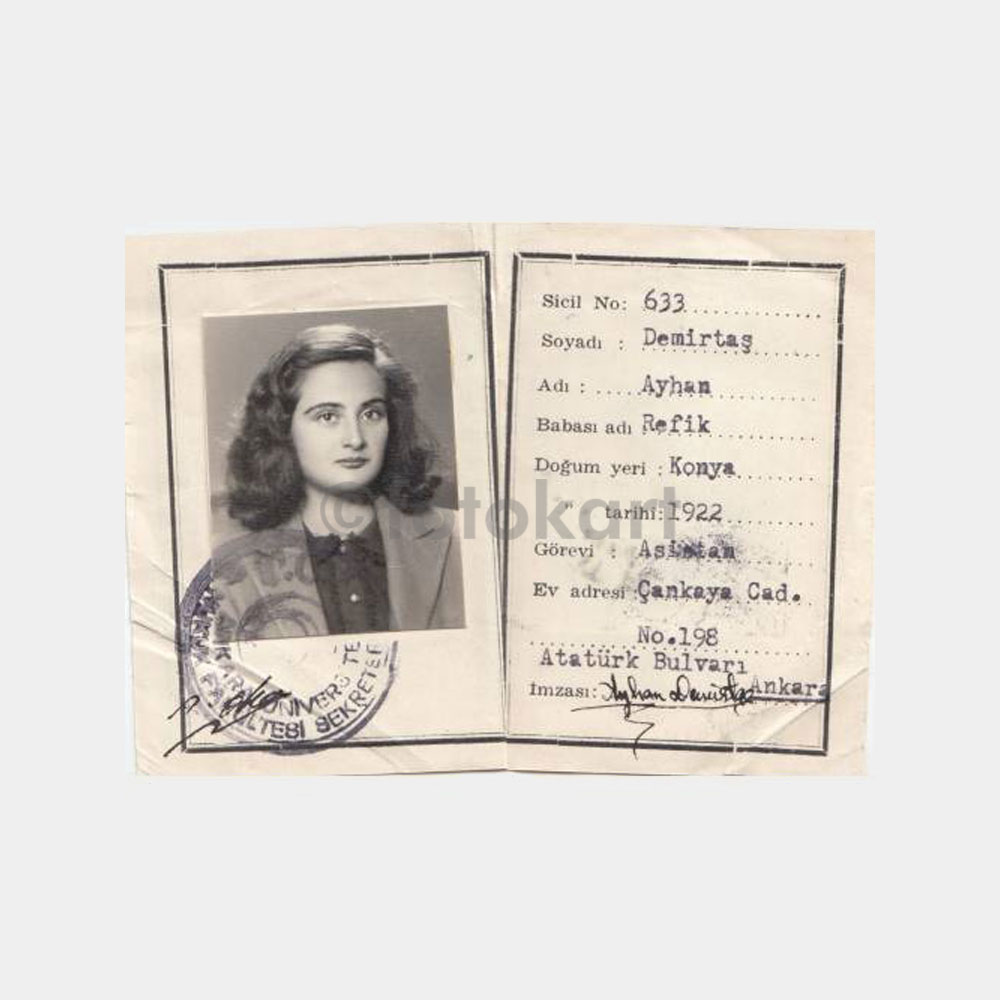 Sicil No: 633
Soyadı : Demirtaş
Adı : Ayhan
Babası adı Refik
Doğum yeri : Konya
" tarihi: 1922
Görevi : Asistan
Ev adresi : Çankaya Cad.
No.198
Atatürk Bulvarı
Ankara
İmzası: Ayhan Demirtaş
©fotokart
T.C.
ÜNİVERSİTE
SEKRETER